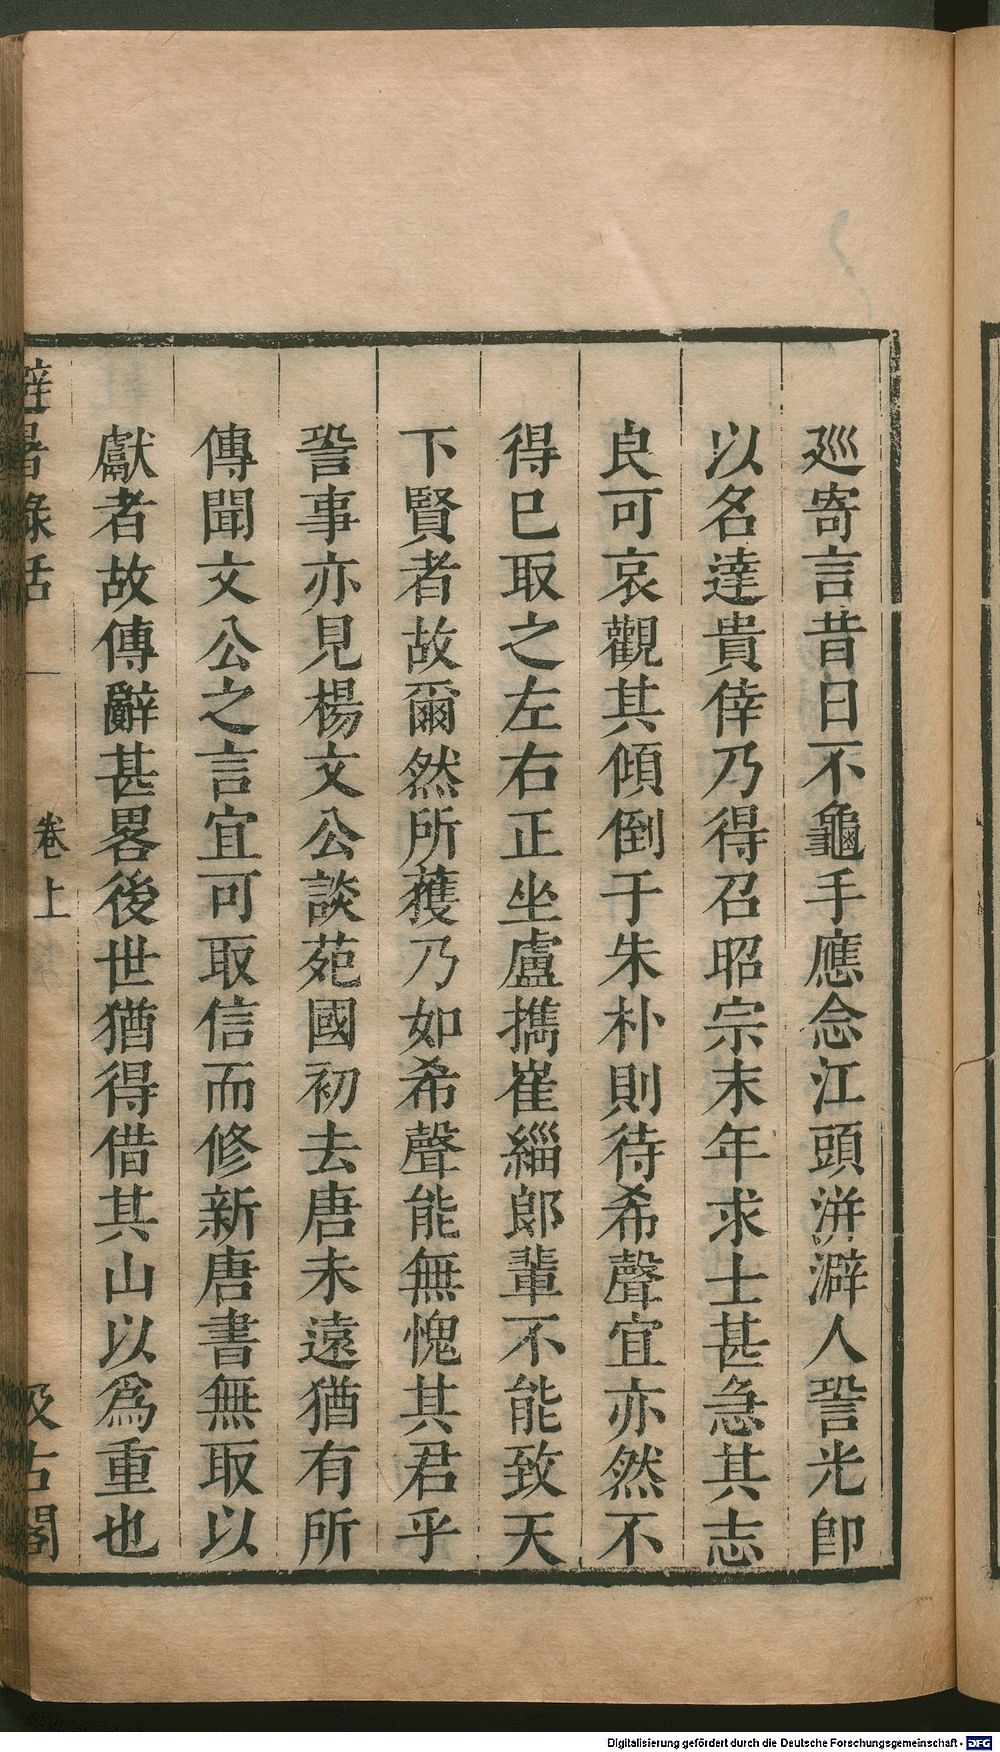 廵寄言昔日不龜手應念江頭洴澼人詧光卽
以名達貴倖乃得召昭宗末年求士甚急其志
良可哀觀其傾倒于朱朴則待希聲宜亦然不
得巳取之左右正坐盧攜崔緇郎輩不能致天
下賢者故爾然所獲乃如希聲能無愧其君乎
詧事亦見楊文公談苑國初去唐未遠猶有所
傳聞文公之言宜可取信而修新唐書無取以
獻者故傳辭甚畧後世猶得借其山以爲重也
避暑錄話
卷上
汲古閣
Digitalisierung gefördert durch die Deutsche Forschungsgemeinschaft - DFG